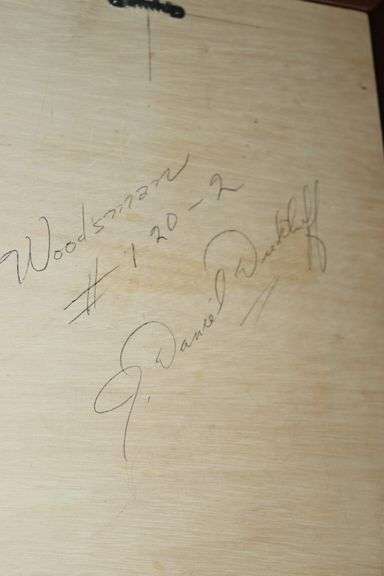 Woodsman
# 120-2
J. Daniel